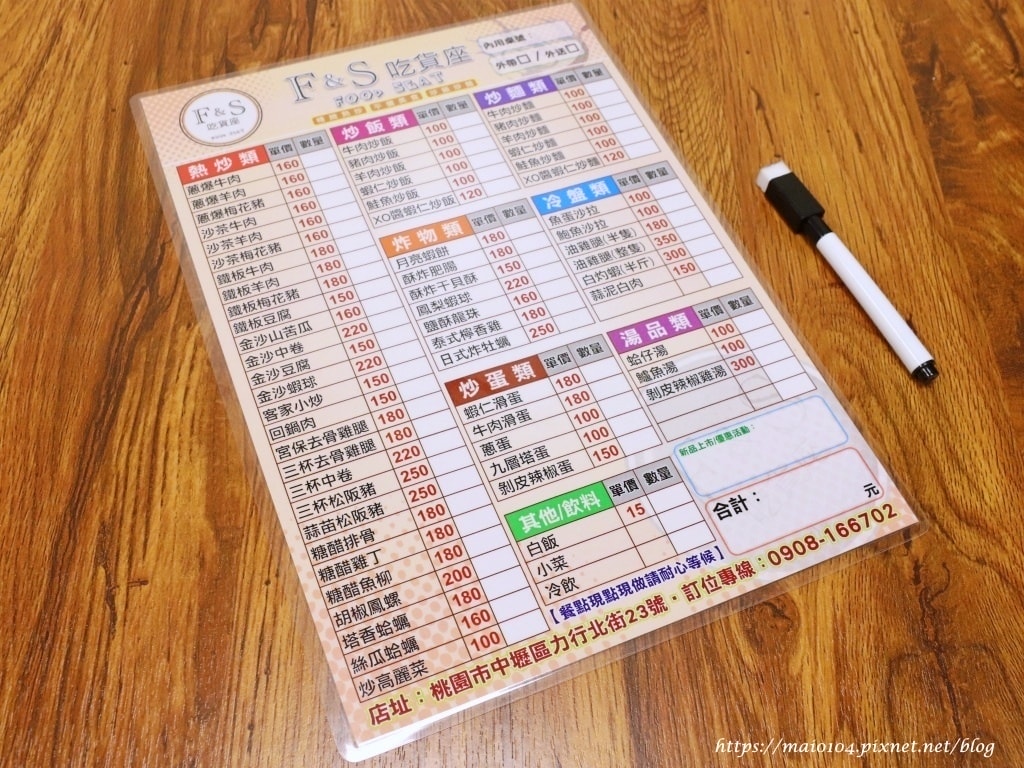 F & S 吃貨座
FOOD SEAT
內用桌號：
外帶□ / 外送□
F & S
吃貨座
FOOD SEAT
熱炒類 單價 數量
蔥爆牛肉 160
蔥爆羊肉 160
蔥爆梅花豬 160
沙茶牛肉 160
沙茶羊肉 160
沙茶梅花豬 160
鐵板牛肉 180
鐵板羊肉 180
鐵板梅花豬 180
鐵板豆腐 150
金沙山苦瓜 160
金沙中卷 220
金沙豆腐 150
金沙蝦球 220
客家小炒 150
回鍋肉 150
宮保去骨雞腿 180
三杯去骨雞腿 180
三杯中卷 220
三杯松阪豬 250
蒜苗松阪豬 250
糖醋排骨 180
糖醋雞丁 180
糖醋魚柳 180
胡椒鳳螺 200
塔香蛤蠣 180
絲瓜蛤蠣 160
炒高麗菜 100
炒飯類 單價 數量
牛肉炒飯 100
豬肉炒飯 100
羊肉炒飯 100
蝦仁炒飯 100
鮭魚炒飯 100
XO醬蝦仁炒飯 120
炸物類 單價 數量
月亮蝦餅 180
酥炸肥腸 180
酥炸干貝酥 150
鳳梨蝦球 220
鹽酥龍珠 160
泰式檸香雞 180
日式炸牡蠣 250
炒蛋類 單價 數量
蝦仁滑蛋 180
牛肉滑蛋 180
蔥蛋 100
九層塔蛋 100
剝皮辣椒蛋 150
其他/飲料 單價 數量
白飯 15
小菜
冷飲
炒麵類 單價 數量
牛肉炒麵 100
豬肉炒麵 100
羊肉炒麵 100
蝦仁炒麵 100
鮭魚炒麵 100
XO醬蝦仁炒麵 120
冷盤類 單價 數量
魚蛋沙拉 100
鮑魚沙拉 100
油雞腿(半隻) 180
油雞腿(整隻) 350
白灼蝦(半斤) 300
蒜泥白肉 150
湯品類 單價 數量
蛤仔湯 100
鱸魚湯 100
剝皮辣椒雞湯 300
新品上市/優惠活動：
合計： 元
【餐點現點現做請耐心等候】
店址：桃園市中壢區力行北街23號・訂位專線：0908-166702
https://maio104.pixnet.net/blog